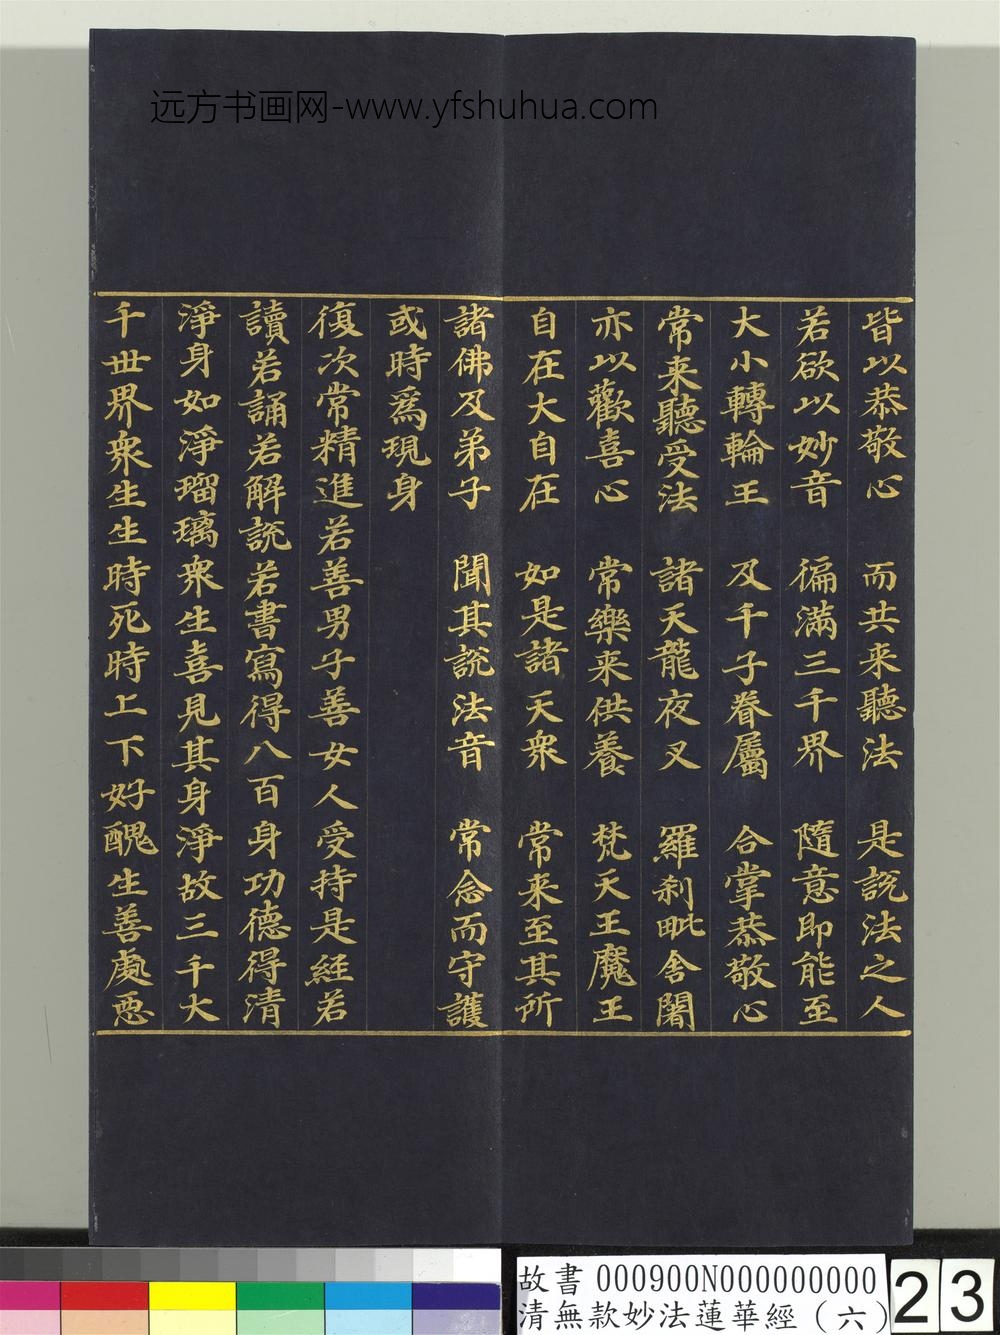 远方书画网-www.yfshuhua.com
皆以恭敬心　而共来聽法　是說法之人
若欲以妙音　徧滿三千界　隨意即能至
大小轉輪王　及千子眷屬　合掌恭敬心
常来聽受法　諸天龍夜叉　羅刹毗舍闍
亦以歡喜心　常樂来供養　梵天王魔王
自在大自在　如是諸天衆　常来至其所
諸佛及弟子　聞其說法音　常念而守護
或時爲現身
復次常精進若善男子善女人受持是經若
讀若誦若解說若書寫得八百身功德得清
淨身如淨瑠璃衆生喜見其身淨故三千大
千世界衆生生時死時上下好醜生善處惡
故書 000900N000000000
清無款妙法蓮華經（六）
23